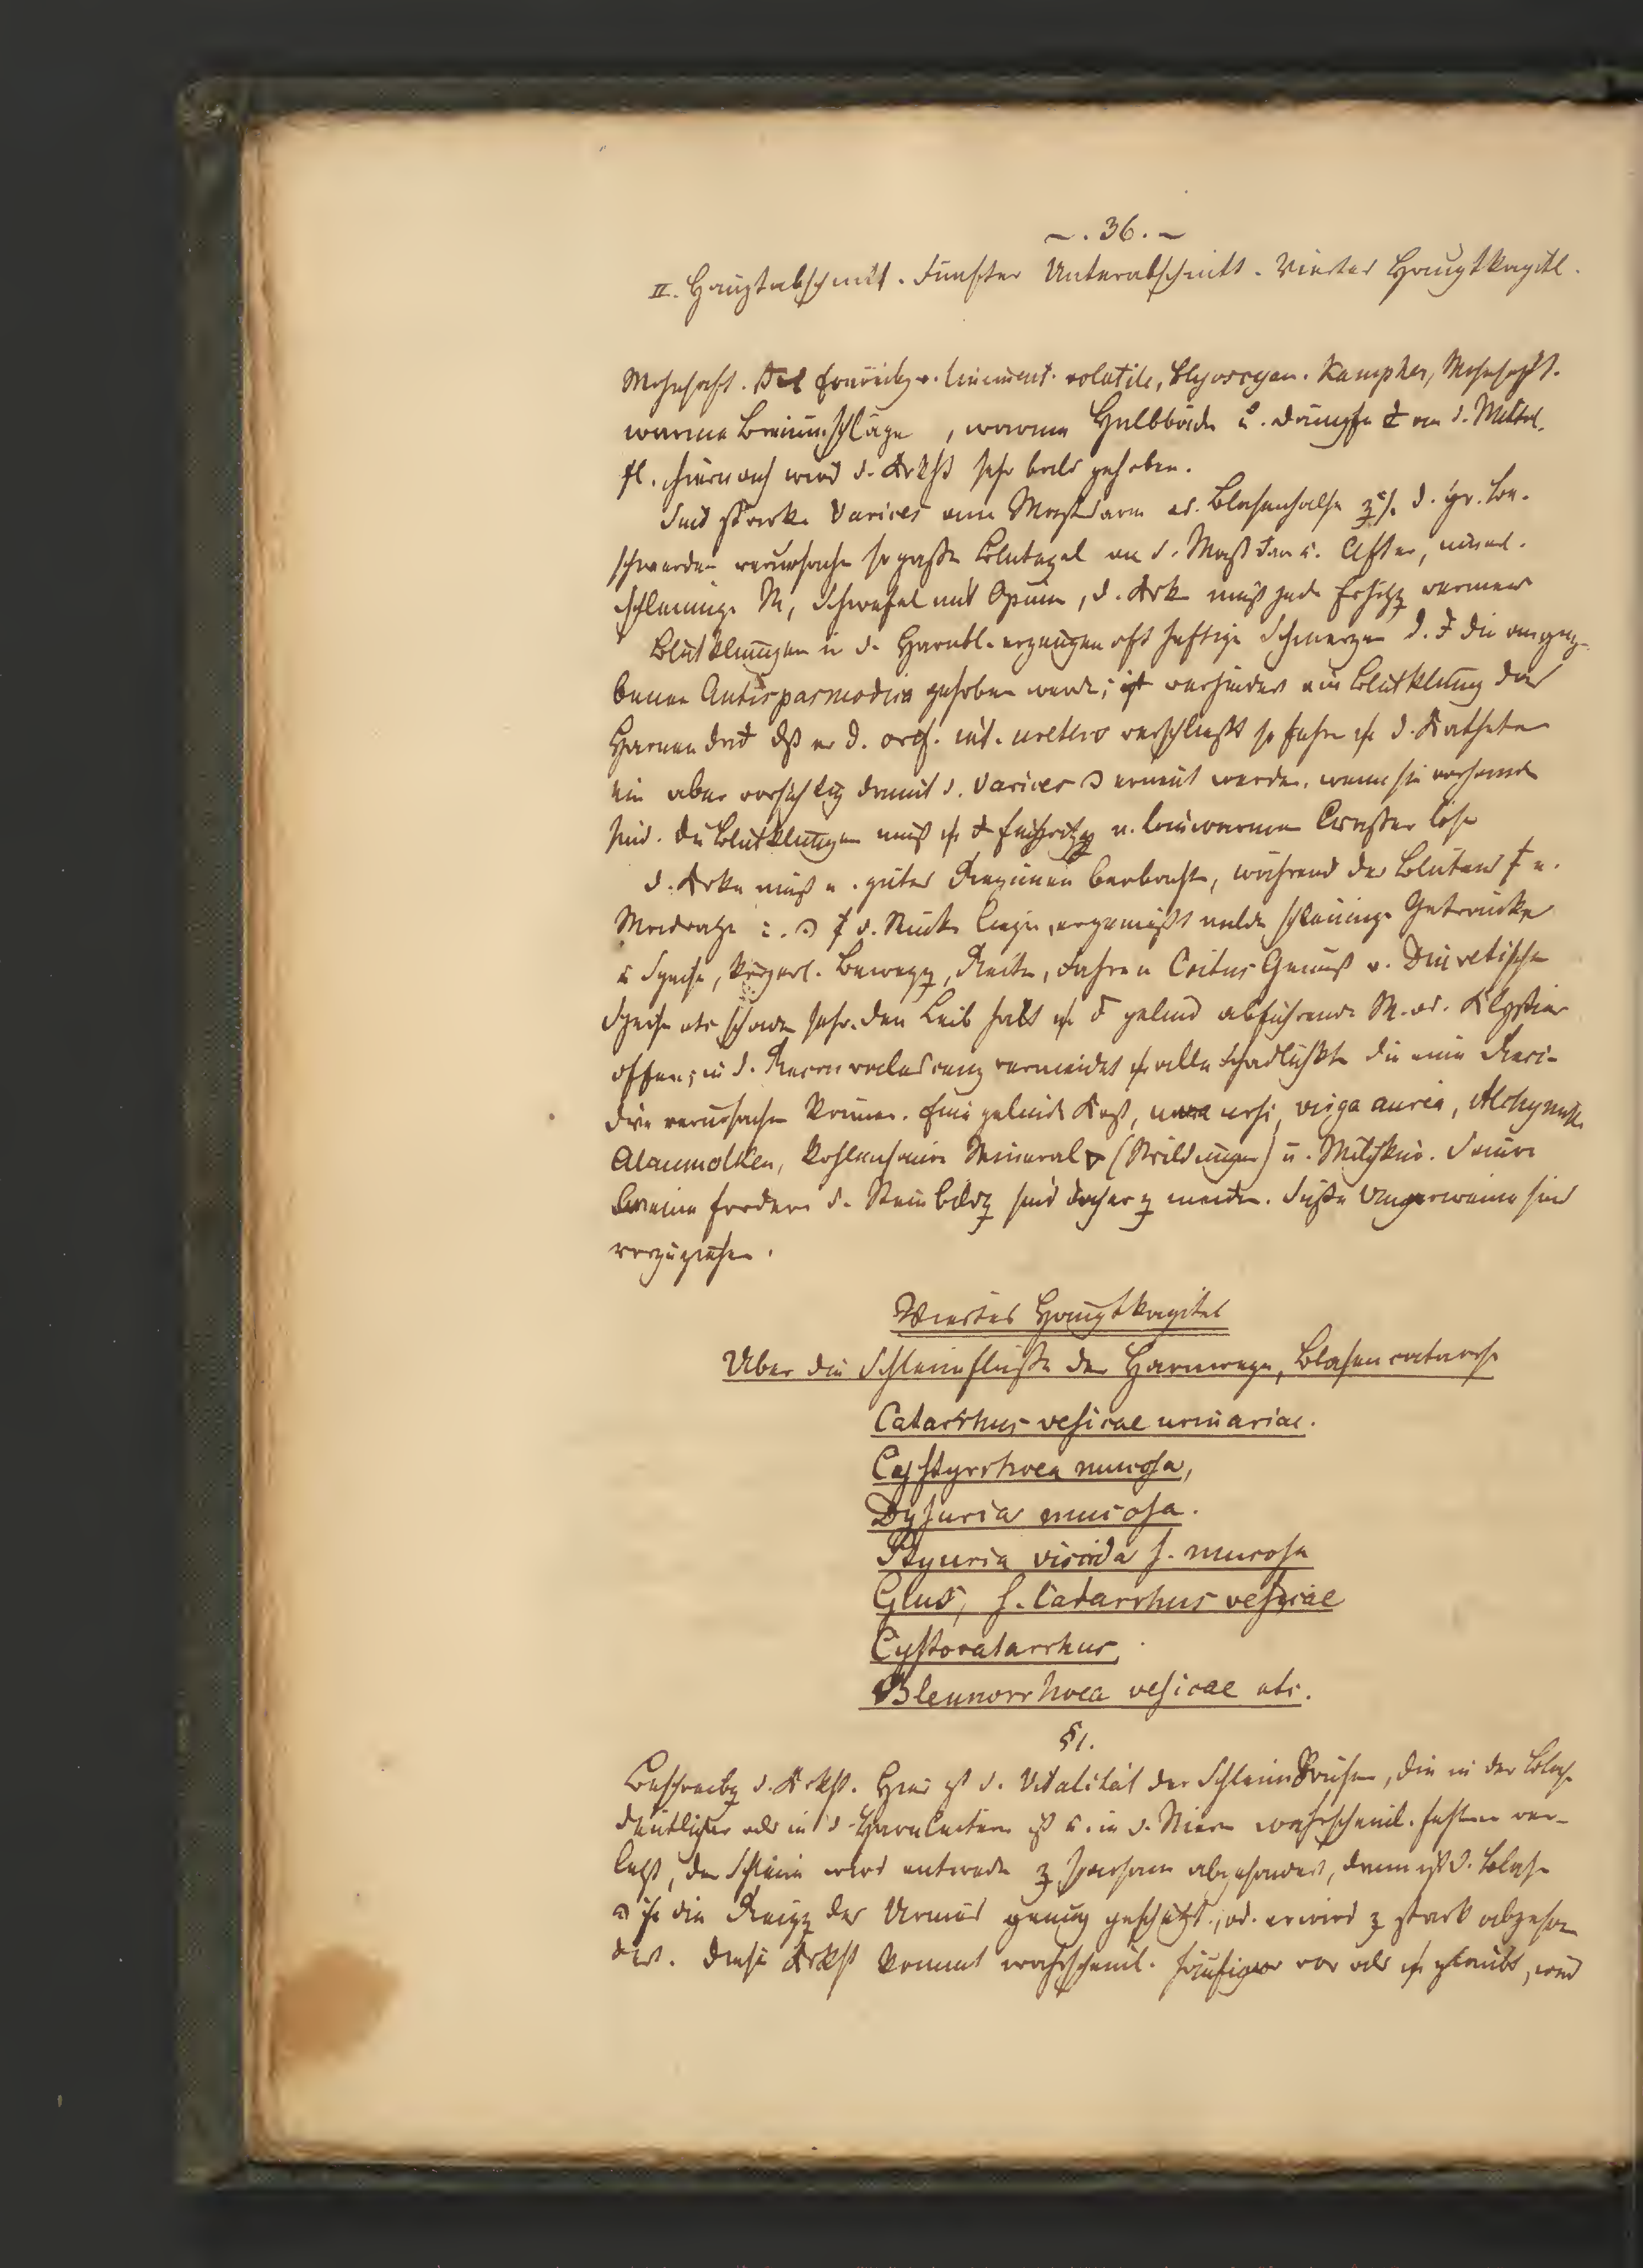 – . 36 . –
II. Hauptabschnitt. Fünfter Unterabschnitt. Viertes Hauptkapitl.
Mohnsaft. v. liniment. volatile, Hyoscyam. Kampher, Mohnsaft.
warme Breiumschläge, warme Halbbäde u. Dämpfe an d. Mittel-
fl. hiernach wird d. Krkht sehr bald gehoben.
Sind starke Varices am Mastdarm od. Blasenhalse d. gr. Be-
schwerden verursache so paße Blutegel an d. Mast dar u. After,
schleimige M, Schwefel mit Opium, d. Krk muß jede Erhitzg vermeid
Blutklumgen in d. Harnbl. erzeugen oft heftige Schmerzen d. die angege-
benen Antispasmodica gehoben werde; verhindert ein Blutklump das
Harnen daß er d. orif. int. urethro verschließt so führe d. Katheter
ein aber vorsichtig damit d. Varices werde, wenn sie vorhande
sind. Die Blutklumgen muß Einspritzg v. lauwarmen Waßer löse
d. Krke muß e. gutes Regimen beobacht, während des Blutens e.
Madratze d. Rück liege, milde schleimige Getränke
u Speise, körperl. Bewegg, Reite, Fahre u Coitus Genuß v. Diuretische
Speise etc schade sehr. den Leib halt gelind abführende M. od. Klystier
offen; in d. Reconvalescenz vermeidet alle Schädlichkt die eine Reci-
dive verursache könne. Eine gelinde Kost, uva ursi, virga aurea, Alchymill.
Alaunmolken, kohlensaure Mineral (Wildungen) u. Milchkur. Saure
Weine fordern d. Steinbildg sind daher z meide. Süße Ungerweine sind
vorzuziehen.
Viertes Hauptkapitel
Uber die Schleimflüße der Harnwege, Blasencatarrh
Catarrhus vesicae urinariae.
Cystyrrhoea mucosa,
Dysuria mucosa.
Styuria viscida s. mucosa
Glus, s. Catarrhus vesicae
Cystocatarrhus,
Blennorrhoea vesicae etc.
§1.
Beschreibg d. Krkht. Hier ist d. Vitalität der Schleimdrüsen, die in der Blase
deutlicher als in d. Harnleitern ist u. in d. Niere wahrscheinl. fehlen ver-
letzt, der Schleim wird entwede z sparsam abgesondert, dann ist d. Blase
die Reizg des Urins genug geschützt, od. er wird z stark abgeson
dert. Diese Krkht kommt wahrscheinl. häufiger vor als glaubt, und